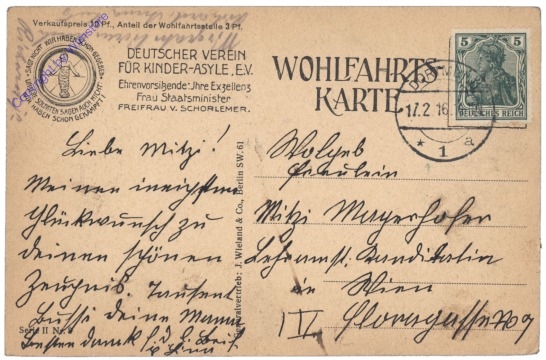 Verkaufspreis 10 Pf., Anteil der Wohlfahrtsstelle 3 Pf.
SAGT NICHT WIR HABEN SCHON GEGEBEN
DIE SOLDATEN SAGEN AUCH NICHT WIR HABEN SCHON GEKÄMPFT!
DEUTSCHER VEREIN
FÜR KINDER-ASYLE, E.V.
Ehrenvorsitzende: Ihre Exzellenz
Frau Staatsminister
FREIFRAU V. SCHORLEMER.
WOHLFAHRTS-
KARTE
5 5
DEUTSCHES REICH
17.2.16
* 1 a
Liebe Mitzi!
Meinen innigsten
Glückwunsch zu
deinen schönen
Zeugnis. Tausend
Bussi deine Mama
Besten Dank f. d. l. Brief
Generalvertrieb: J. Wieland & Co., Berlin SW. 61
Wolgeb
Fräulein
Mitzi Mayerhofer
Lehramts. Kanditatin
in Wien
IV Floragasse No 7
Serie II Nr.